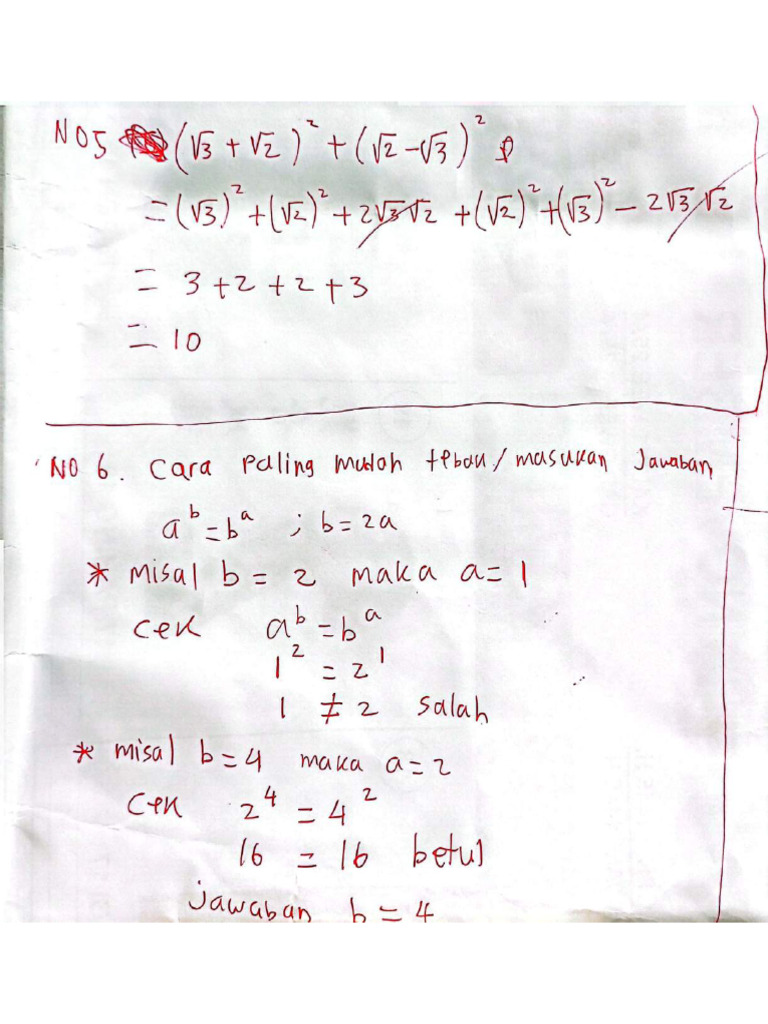 NO5 (√3 + √2)² + (√2 - √3)²
= (√3)² + (√2)² + 2√3√2 + (√2)² + (√3)² - 2√3√2
= 3 + 2 + 2 + 3
= 10
NO 6. Cara paling mudah tebak/masukan jawaban
a^b = b^a ; b = 2a
* misal b = 2 maka a = 1
cek a^b = b^a
1² = 2¹
1 ≠ 2 salah
* misal b = 4 maka a = 2
Cek 2⁴ = 4²
16 = 16 betul
jawaban b = 4